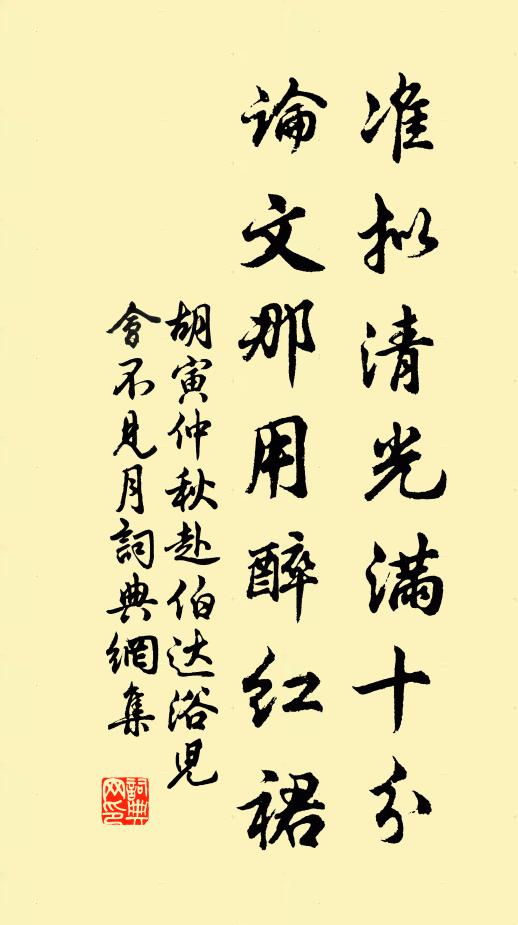 准拟清光满十分
論文那用醉红裙
胡寅仲秋赴伯达浴児
會不见月詞典網集
詞典
网印